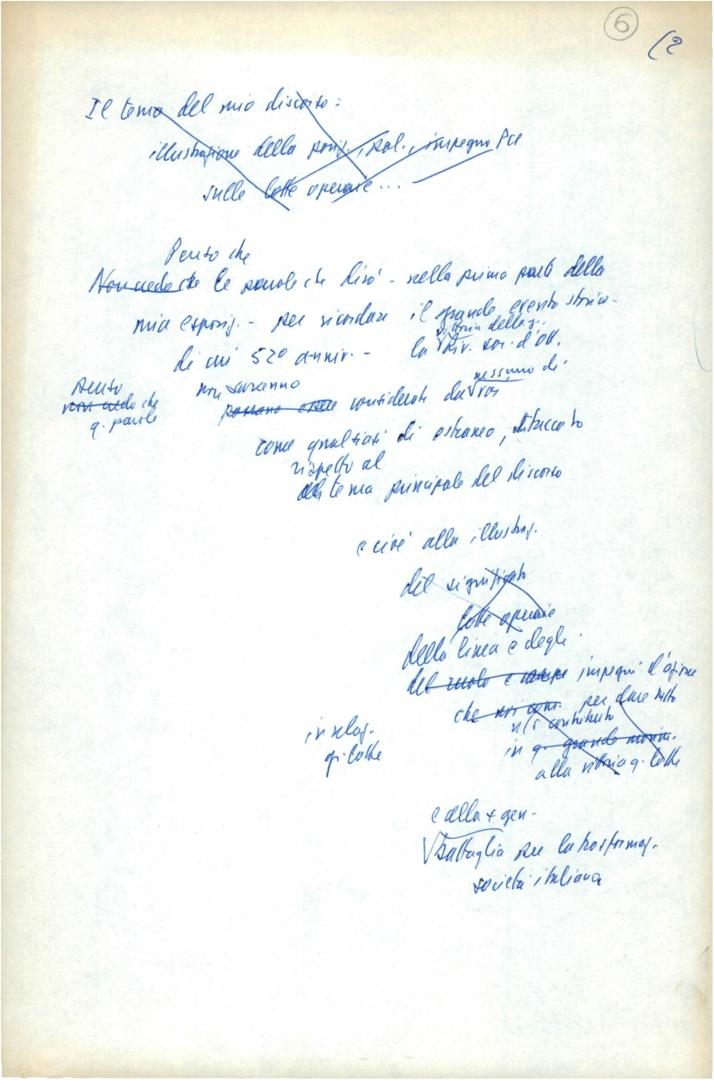 6
(2
Il tema del mio discorso:
illustrazione della posiz., pol., impegno PCI
sulle lotte operaie...
Penso che
Non credo che le parole che dirò - nella prima parte della
mia esposiz. - per ricordare il grande evento storico
vittoria della
di cui 52º anniv. - la Riv. soc. d'Ott.
penso non saranno nessuno di
non credo che possano essere considerate da voi
q. parole
come qualsiasi di estraneo, distaccato
rispetto al
dal tema principale del discorso
e cioè alla illustraz.
del significato
lotte operaie
della linea e degli
del ruolo e impegni d'azione
che noi com. per dare tutto
in relaz. n/s contributo
q. lotte in q. grande movim.
alla vittoria q. lotte
e alla + gen.
battaglia per la trasformaz.
società italiana